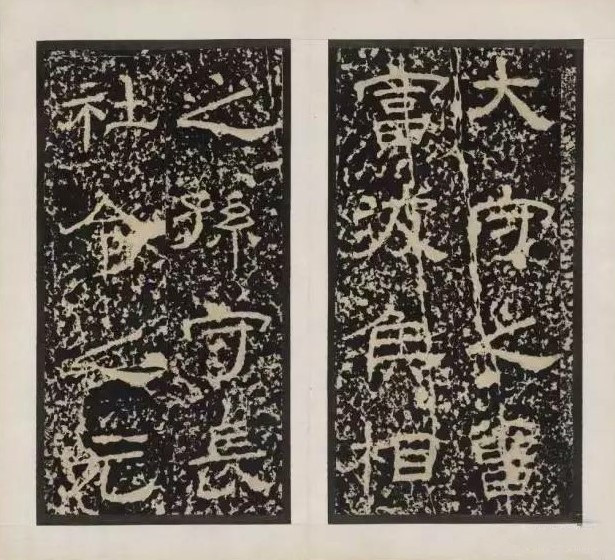 大守之曾
富波侯相
之孫守長
社令之元